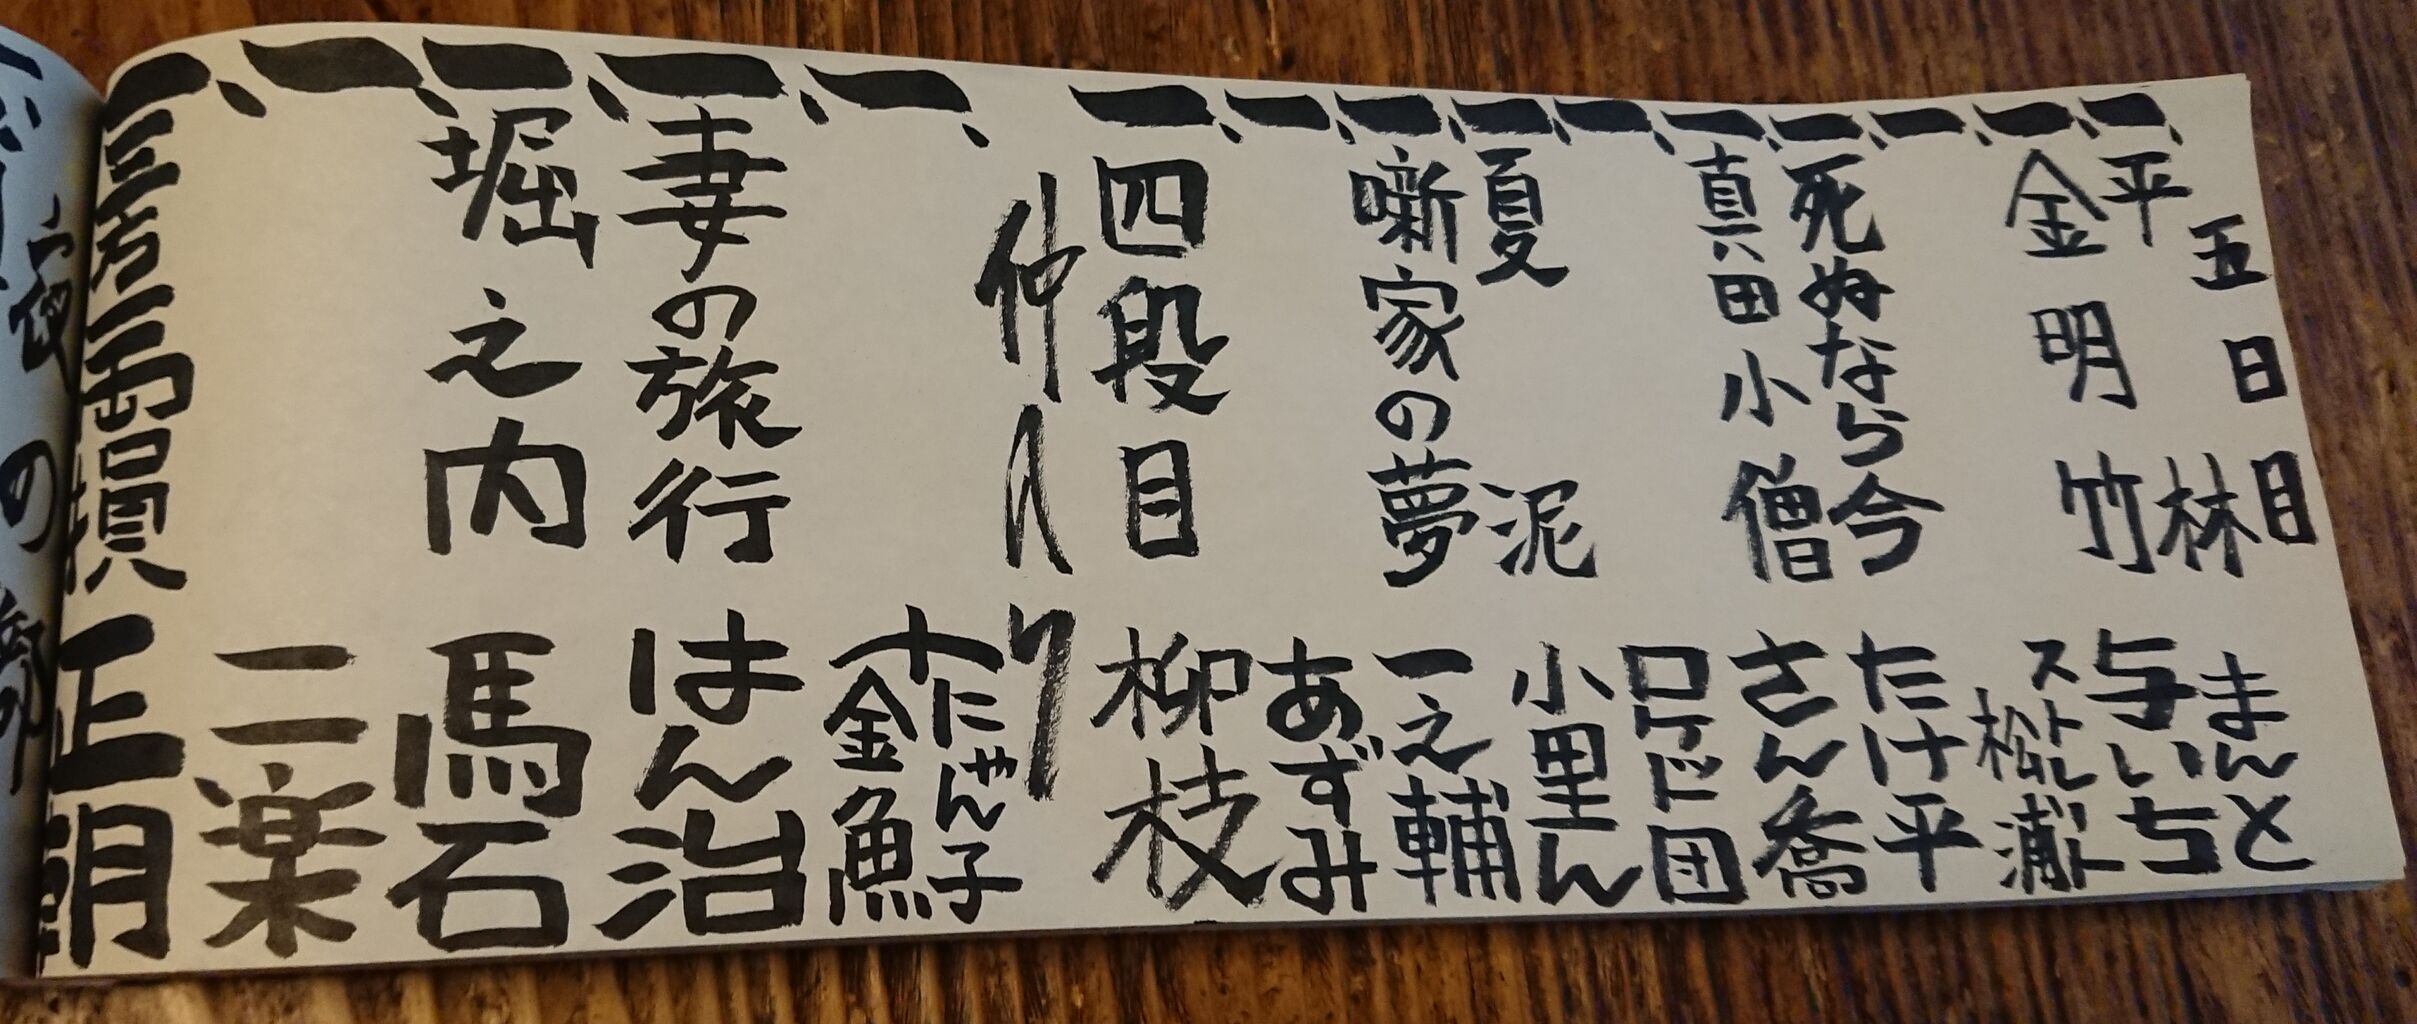 五日目
一、平林 まんと
一、金明竹 与いち
一、ストレート松浦
一、死ぬなら今 たけ平
一、真田小僧 さん喬
一、ロケット団
一、夏泥 小里ん
一、噺家の夢 一之輔
一、あずみ
一、四段目 柳枝
仲入り
一、にゃん子 金魚
一、妻の旅行 はん治
一、堀之内 馬石
一、二楽
一、三方一両損 正朝